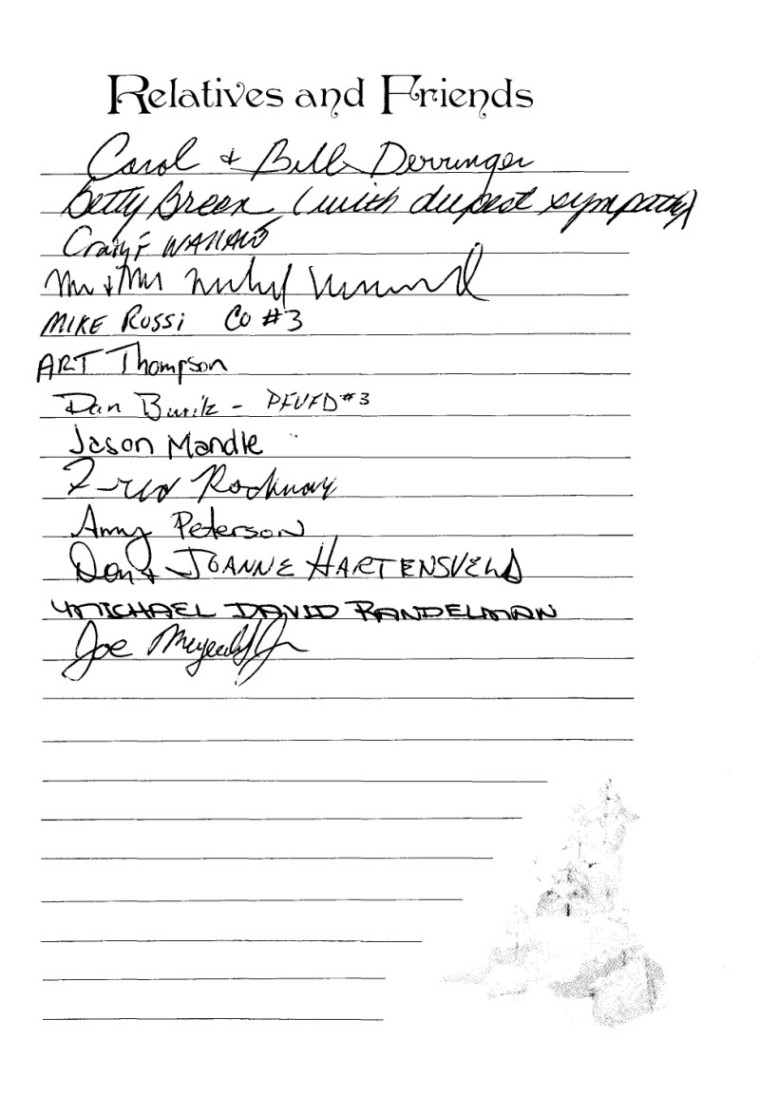 Relatives and Friends
Carol & Bill Derringer
Betty Breen (with deepest sympathy)
Craig
Mr & Mrs
MIKE Rossi CO #3
ART Thompson
Dan - PFVFD #3
Jason Mandle
Fred
Amy Peterson
Don & JOANNE HARTENSVELD
MICHAEL DAVID RANDELMAN
Joe Jr